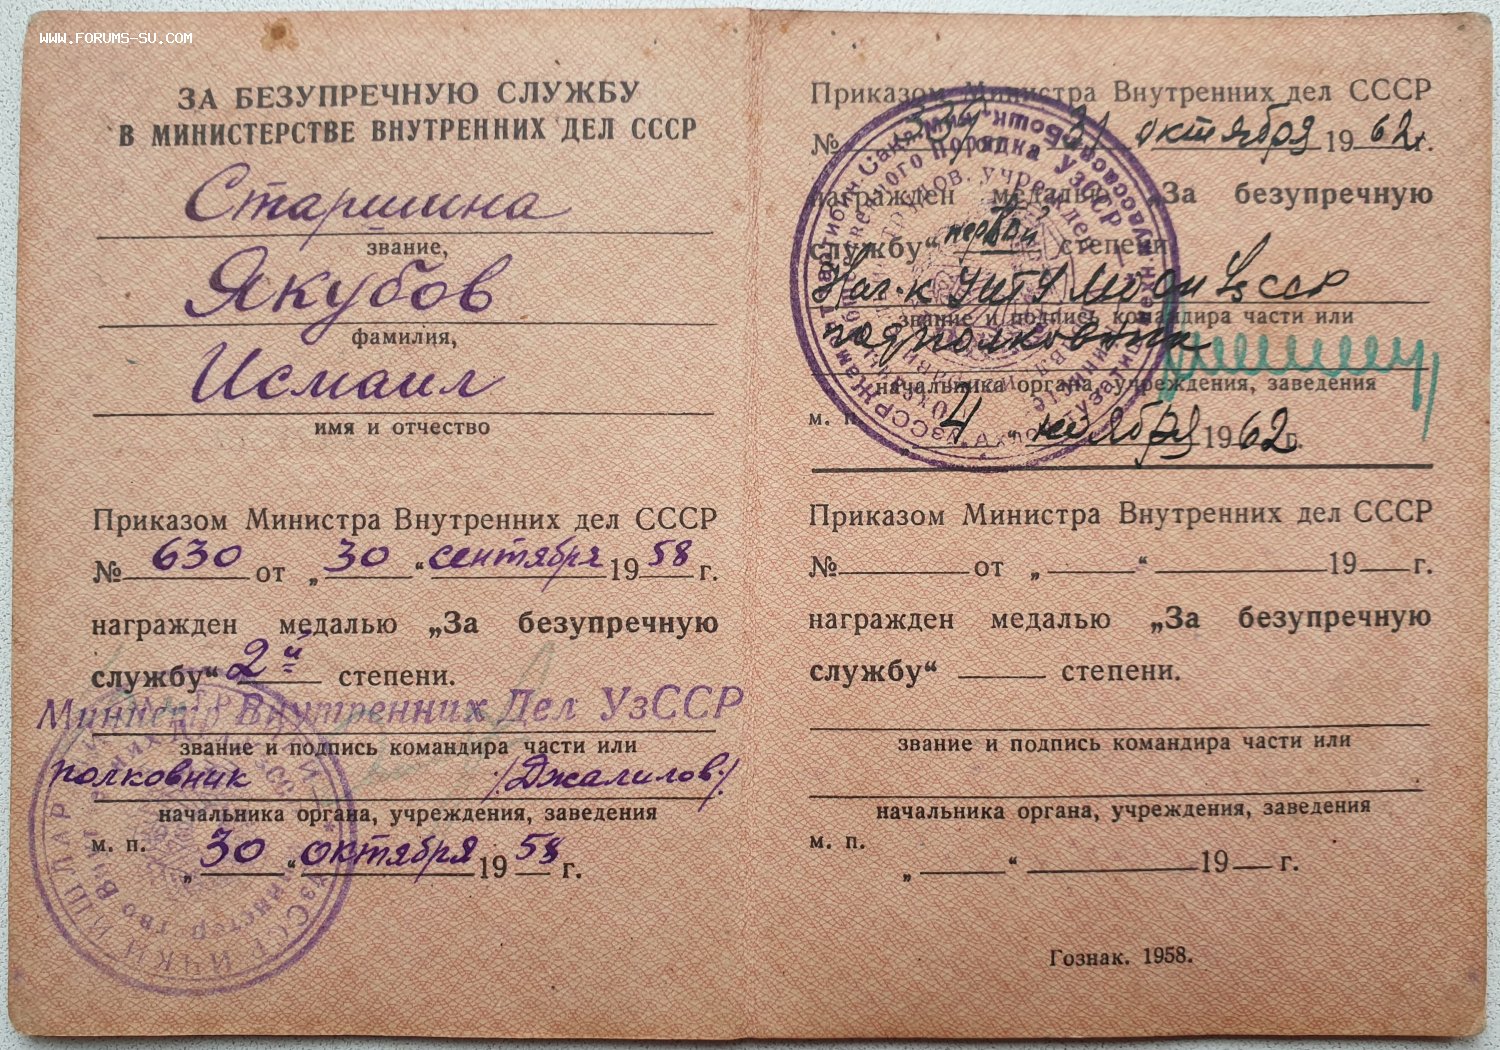 WWW.FORUMS-SU.COM
ЗА БЕЗУПРЕЧНУЮ СЛУЖБУ
В МИНИСТЕРСТВЕ ВНУТРЕННИХ ДЕЛ СССР
Старшина
звание,
Якубов
фамилия,
Исмаил
имя и отчество
Приказом Министра Внутренних дел СССР
№ 630 от „30“ сентября 1958 г.
награжден медалью „За безупречную
службу“ 2й степени.
Министр Внутренних Дел УзССР
звание и подпись командира части или
полковник /Джалилов/
начальника органа, учреждения, заведения
м. п.
„30“ октября 1958 г.
Приказом Министра Внутренних дел СССР
№ 31 октября 1962 г.
награжден медалью „За безупречную
службу“ первой степени
Нач-к УИТУ МООП УзССР
звание и подпись командира части или
подполковник
начальника органа, учреждения, заведения
м. п.
4 “ ноября 1962 г.
Приказом Министра Внутренних дел СССР
№ от „ “ 19 г.
награжден медалью „За безупречную
службу“ степени.
звание и подпись командира части или
начальника органа, учреждения, заведения
м. п.
„ “ 19 г.
Гознак. 1958.